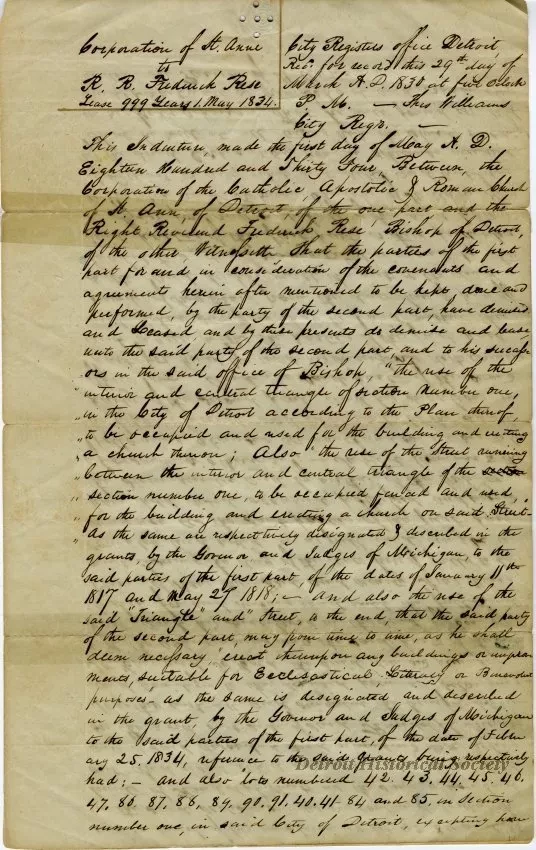 Corporation of St. Anne
to
R. R. Frederick Rese
Lease 999 Years 1. May 1834.
City Registers office Detroit
Rec. for record this 29th day of
March A. D. 1830 at five oclock
P. M. — Thos Williams
City Regr. —
This Indenture, made the first day of May A. D.
Eighteen Hundred and Thirty Four, Between, the
Corporation of the Catholic, Apostolic & Roman Church
of St. Ann, of Detroit, of the one part and the
Right Reverend Frederick Rese Bishop of Detroit,
of the other, Witnesseth that the parties of the first
part for and in consideration of the covenants and
agreements herein after mentioned to be kept, done and
performed, by the party of the second part, have demised
and Leased and by these presents do demise and lease
unto the said party of the second part, and to his success
ors in the said office of Bishop, "the use of the
" interior and central triangle of section number one,
" in the City of Detroit according to the Plan thereof,
" to be occupied and used for the building and erecting
" a church thereon; Also "the use of the Street running
" between the interior and central triangle of the
" section number one, to be occupied fenced and used,
" for the building and erecting a church on said Street—
" As the same are respectively designated & described in the
grants, by the Govnor and Judges of Michigan, to the
said parties of the first part, of the dates of January 11th
1817 and May 27 1818; — and also the use of the
said "Triangle" and "Street, to the end, that the said party
of the second part may from time to time, as he shall
deem necessary, erect thereupon any buildings or improve
ments, suitable for Ecclesastical Literary or Benevolent
purposes — as the same is designated and described
in the grant by the Govnor and Judges of Michigan
to the said parties of the first part, of the date of Febru
ary 25, 1834, reference to the said grants being respectively
had; — and also lots numbered 42. 43, 44, 45, 46,
47, 86, 87, 88, 89, 90, 91, 40, 41 84 and 85, in Section
number one, in said City of Detroit, excepting
Detroit Historical Society